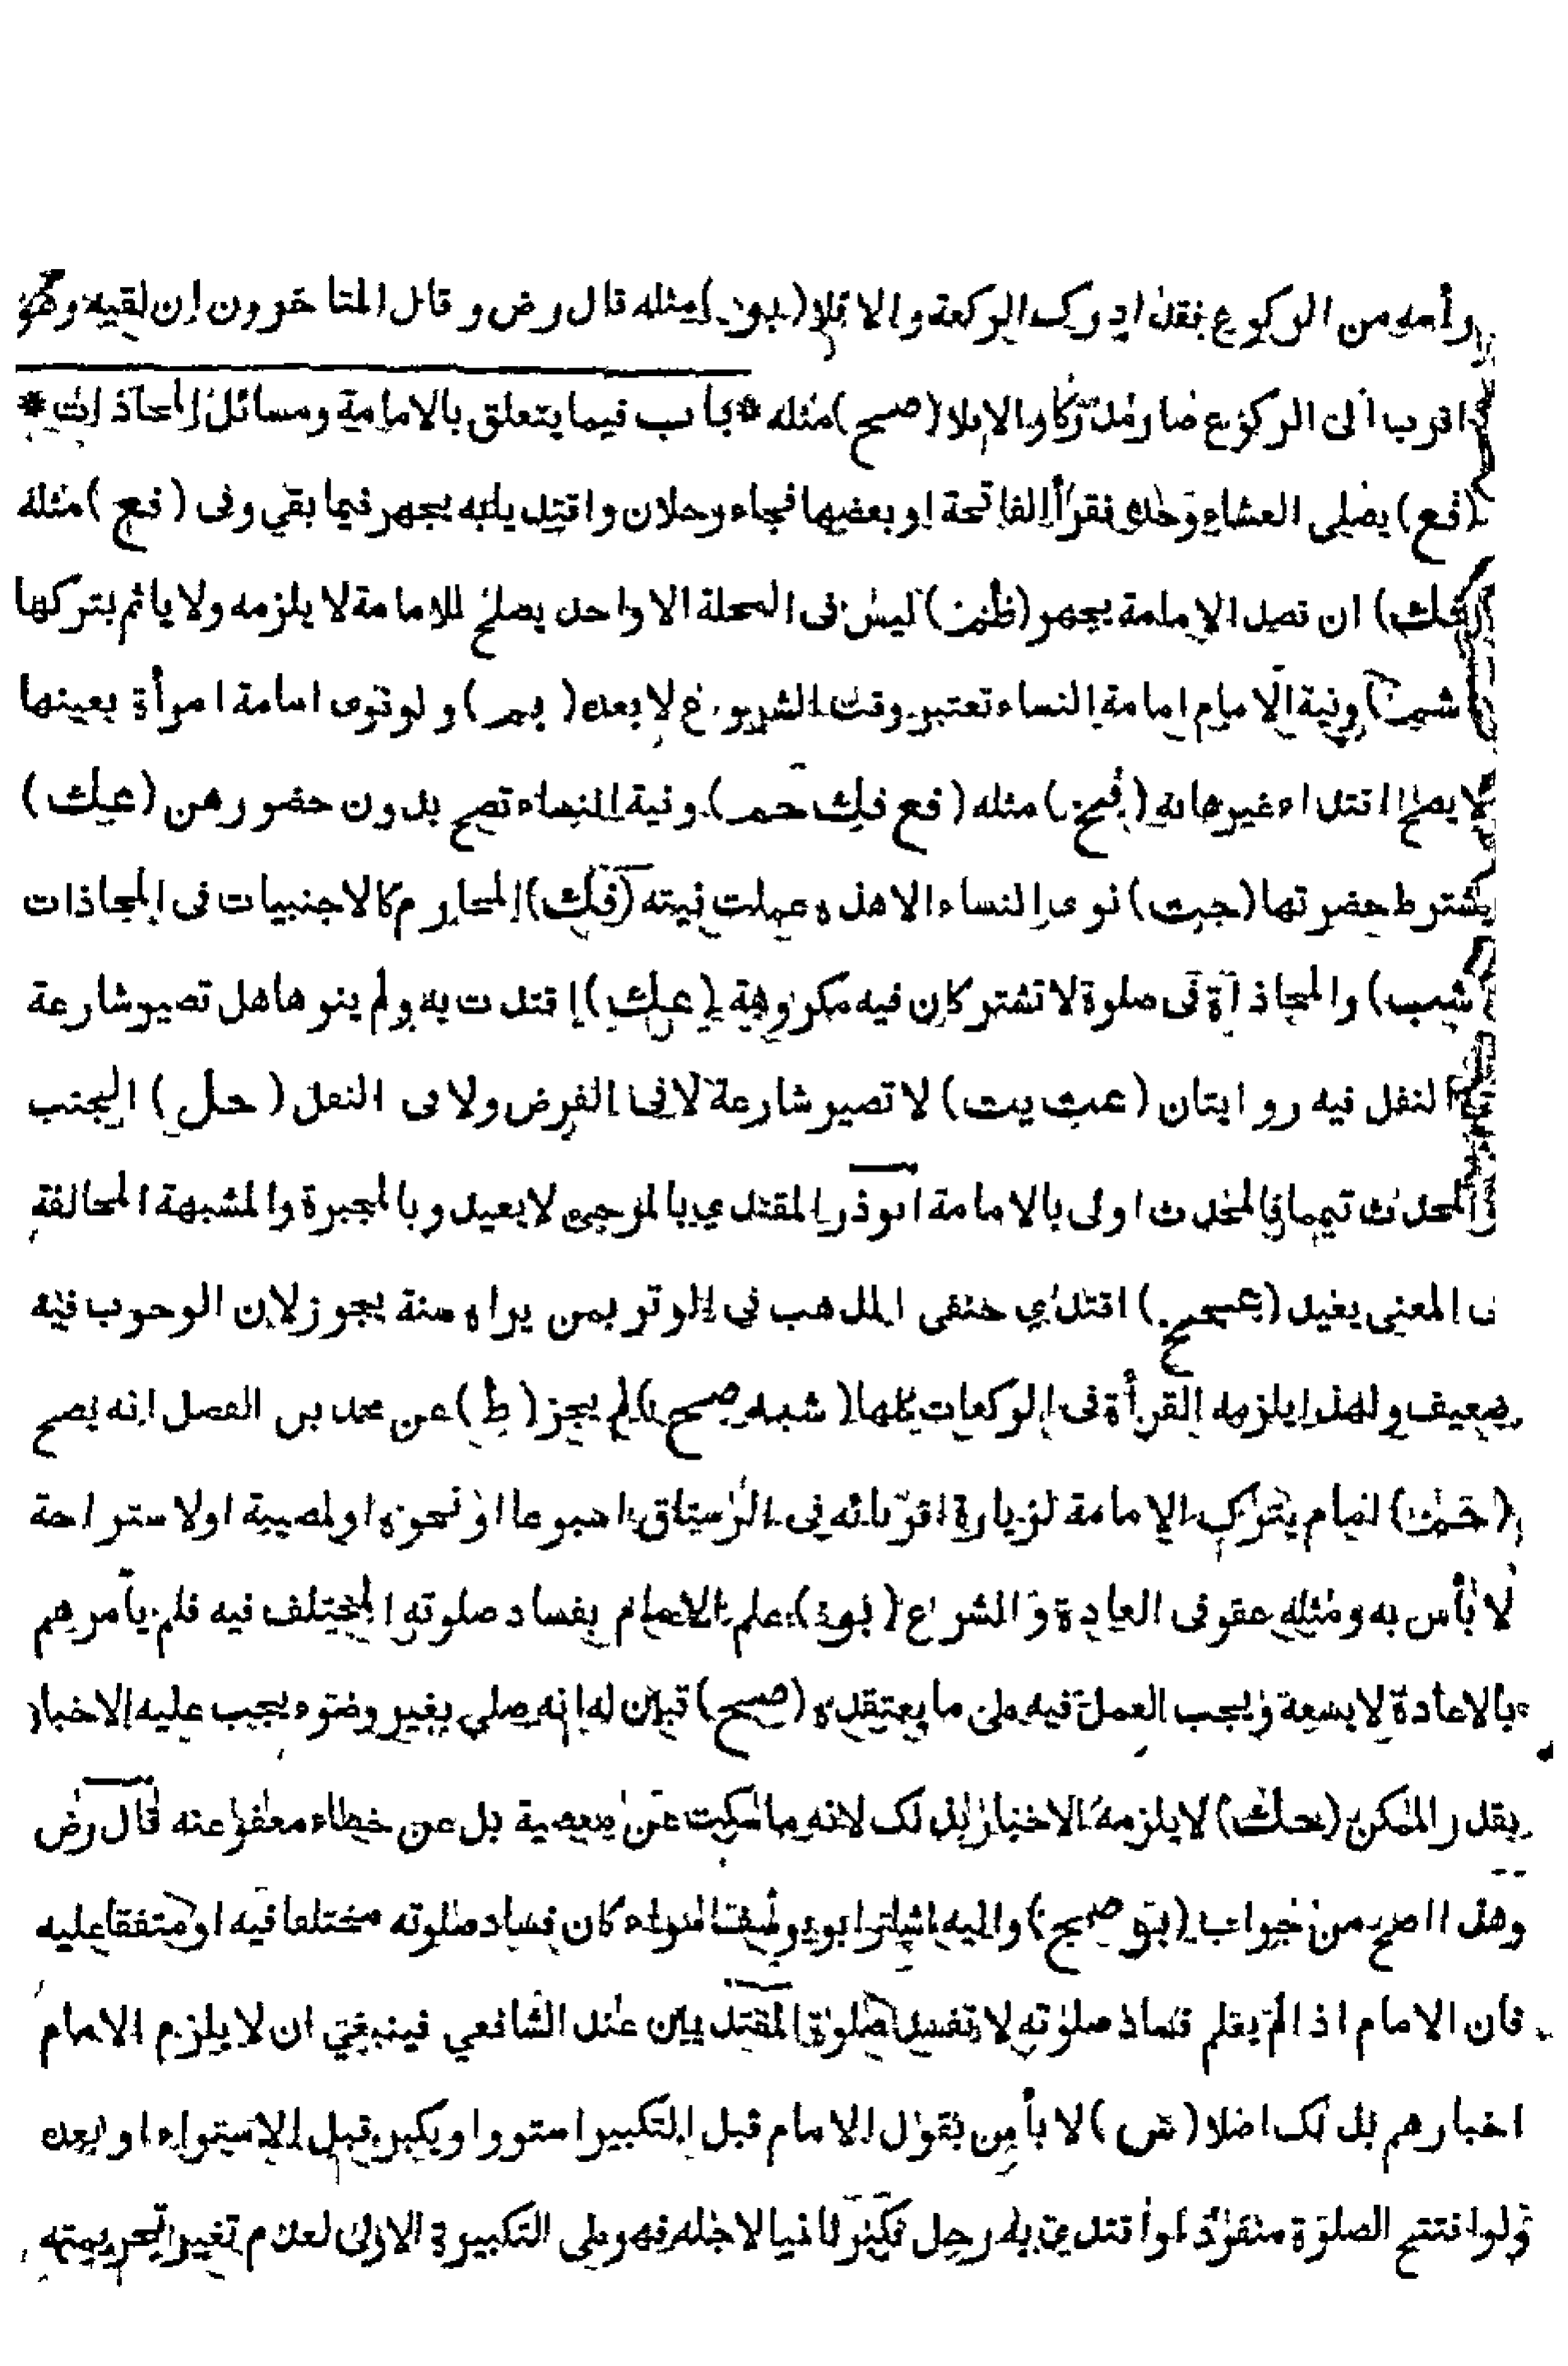 رأسه من الركوع فقد ادرك الركعة والا فلا (بو) مثله قال رض و قال المتاخرون ان لقيه وهو
اقرب الى الركوع صار مدركا والا فلا (صح) مثله * باب فيما يتعلق بالامامة ومسائل المحاذات *
(فع) يصلى العشاء وحده فقرأ الفاتحة او بعضها فجاء رجلان واقتديا به يجهر فيما بقي وفى (فع) مثله
(فك) ان قصد الامامة يجهر (ظم) ليس فى المحلة الا واحد يصلح للامامة لا يلزمه ولا ياثم بتركها
(شم) ونية الامام امامة النساء تعتبر وقت الشروع لا بعده (بم) ولو نوى امامة امرأة بعينها
لا يصح اقتداء غيرها به (بخ) مثله (فع فك حم) ونية النساء تصح بدون حضورهن (عك)
يشترط حضرتها (جت) نوى النساء الا هذه عملت نيته (فك) المحارم كالاجنبيات فى المحاذات
(شب) والمحاذاة فى صلوة لا تشتركان فيه مكروهة (عك) اقتدت به ولم ينوها هل تصير شارعة
النفل فيه روايتان (عت يت) لا تصير شارعة لا فى الفرض ولا فى النفل (حل) الجنب
المحدث تيمما فالمحدث اولى بالامامة ابوذر المقتدي بالمرجى لا يعيد وبالمجبرة والمشبهة المخالفة
فى المعنى يعيد (بح) اقتدي حنفى المذهب فى الوتر بمن يراه سنة يجوز لان الوجوب فيه
ضعيف ولهذا يلزمه القرأة فى الركعات كلها (شبه صح) لم يجز (ط) عن محمد بن الفضل انه يصح
امام يترك الامامة لزيارة اقربائه فى الرستاق اسبوعا او نحوه او لمصيبة او لاستراحة
لا بأس به ومثله عفو فى العادة والشرع (بو) علم الامام بفساد صلوته المختلف فيه فلم يأمرهم
بالاعادة لا يسعه ويجب العمل فيه على ما يعتقده (صح) تبين له انه صلي بغير وضوء يجب عليه الاخبار
بقدر الممكن (حك) لا يلزمه الاخبار بذلك لانه ما سكت عن معصية بل عن خطاء معفو عنه قال رض
وهذا اصح من جواب (بو صح) واليه اشار ابو يوسف سواء كان فساد صلوته مختلفا فيه او متفقا عليه
فان الامام اذا لم يعلم فساد صلوته لا تفسد صلوة المقتديين عند الشافعي فينبغي ان لا يلزم الامام
اخبارهم بذلك اصلا (ش) لا بأس بقول الامام قبل التكبير استووا ويكبر قبل الاستواء او بعده
ولو افتتح الصلوة منفردا واقتدي به رجل فكبر ثانيا لاجله فهو على التكبيرة الاولى لعدم تغير تحريمته